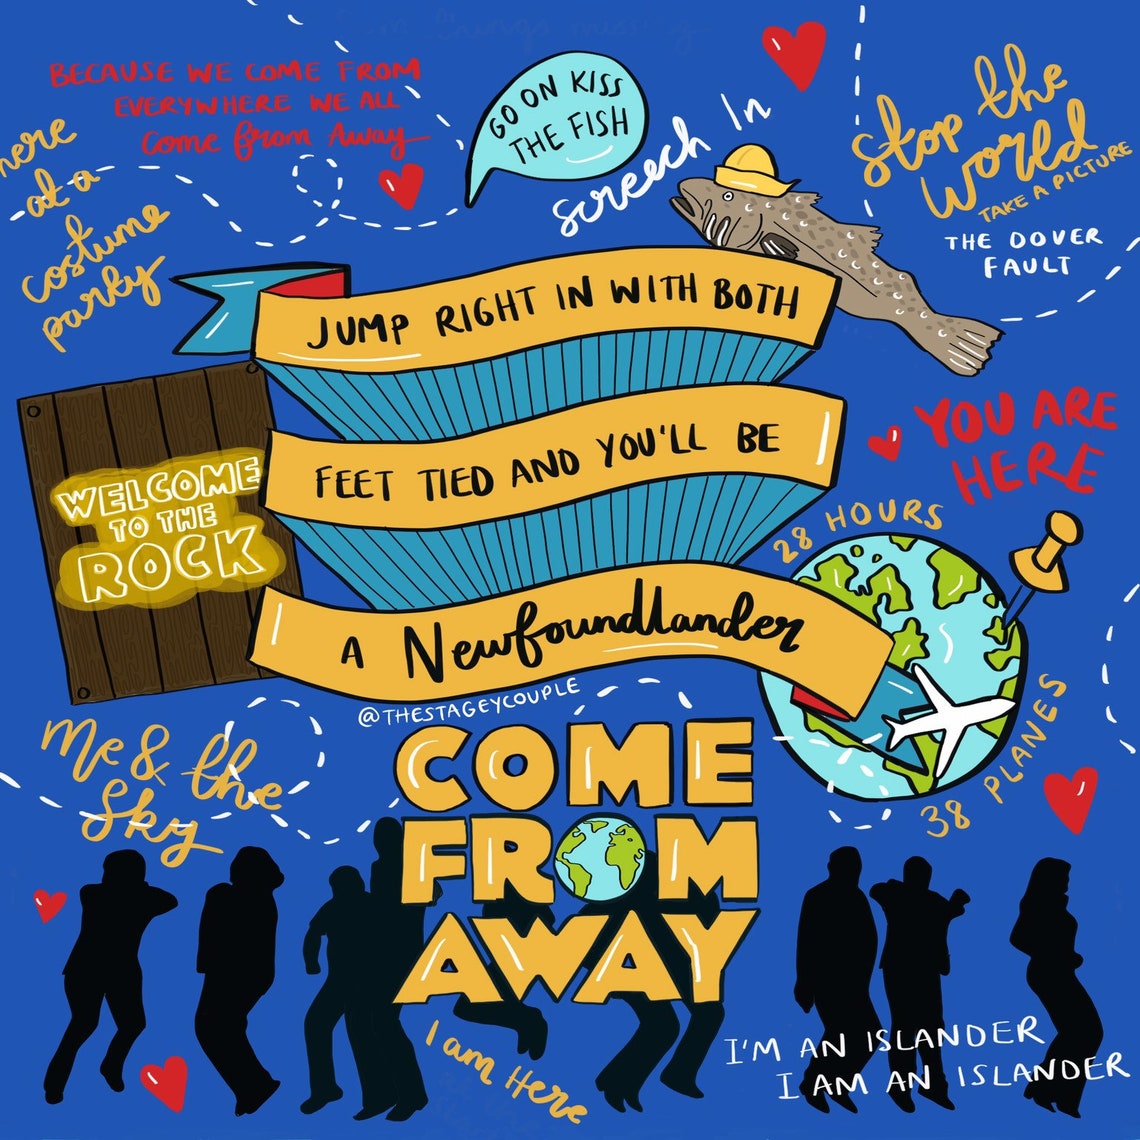 BECAUSE WE COME FROM
EVERYWHERE WE ALL
Come from Away
GO ON KISS
THE FISH
screech In
Stop the
World
TAKE A PICTURE
THE DOVER
FAULT
at a
costume
party
JUMP RIGHT IN WITH BOTH
FEET TIED AND YOU'LL BE
A Newfoundlander
@THESTAGEYCOUPLE
WELCOME
TO THE
ROCK
YOU ARE
HERE
28 HOURS
38 PLANES
Me & the
Sky
COME
FROM
AWAY
I am Here
I'M AN ISLANDER
I AM AN ISLANDER